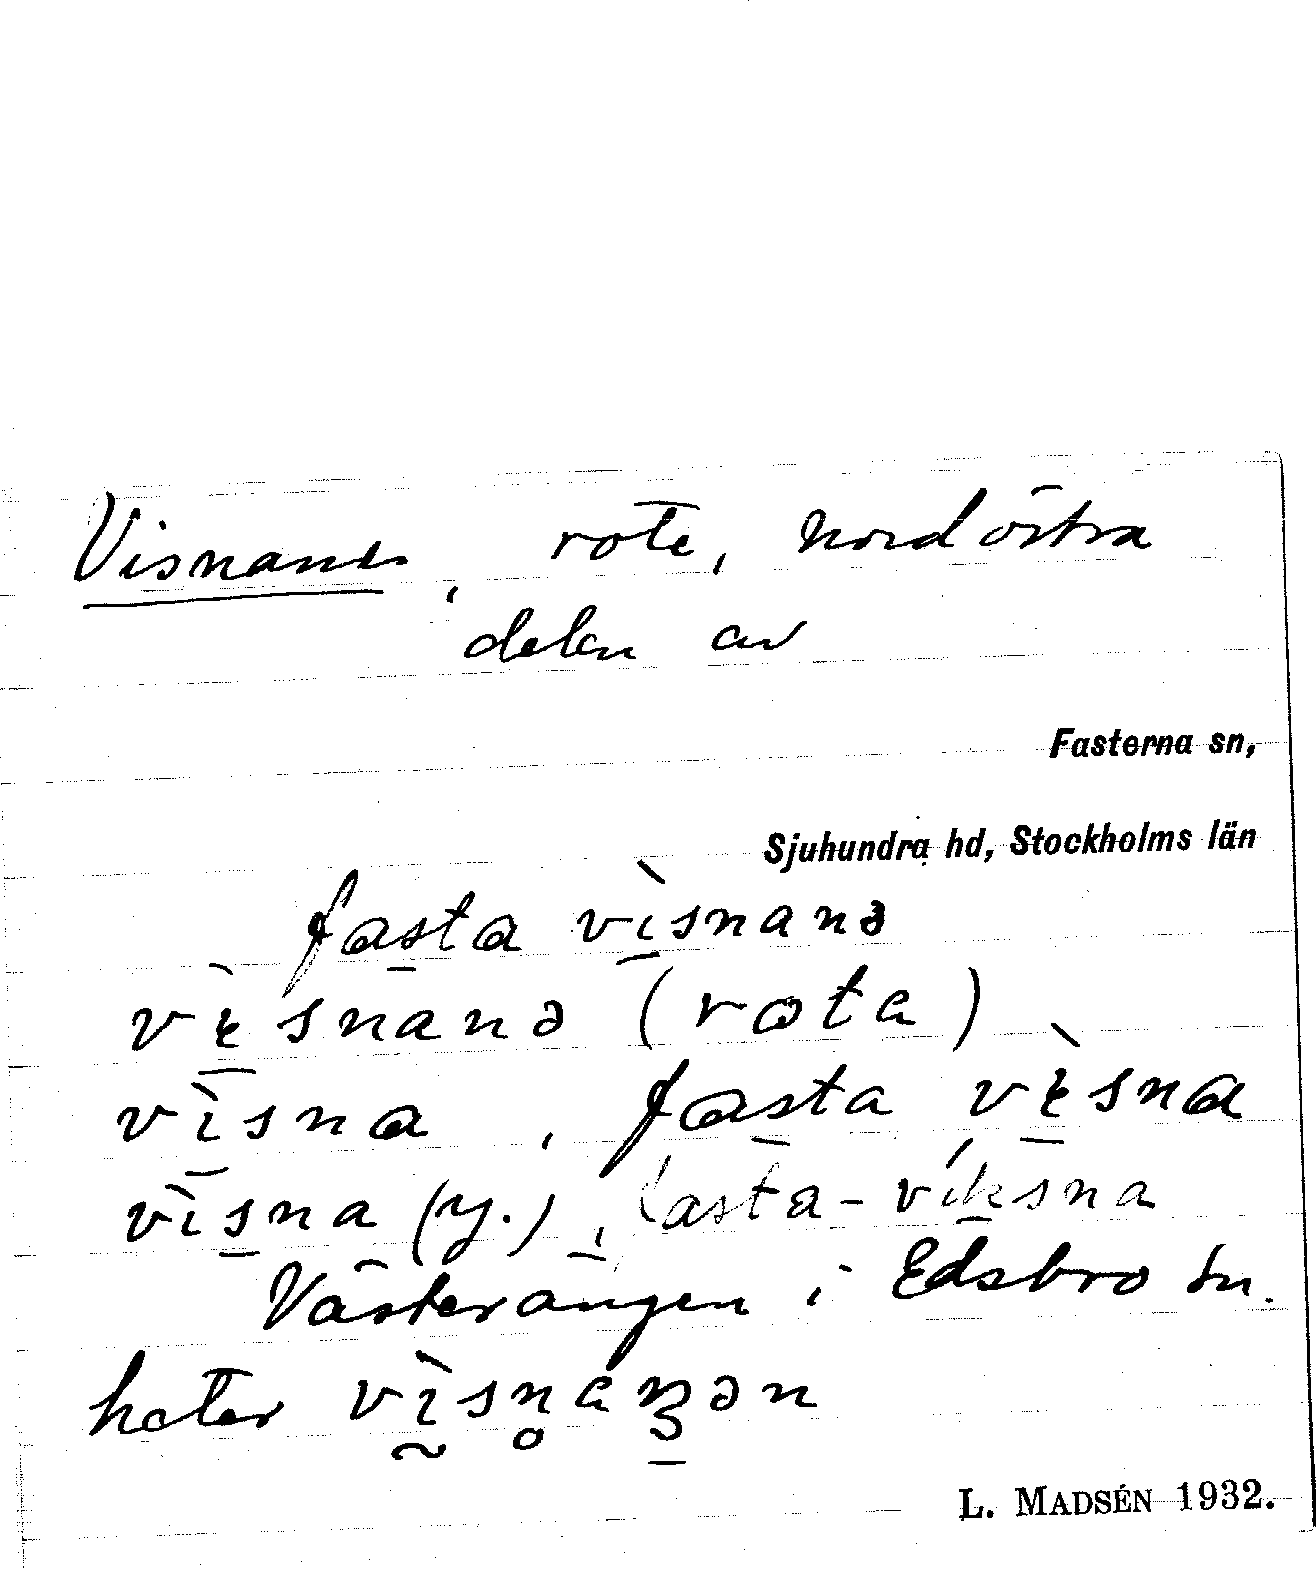 Visnans, rote, nordöstra
delen av
Fasterna sn,
Sjuhundra hd, Stockholms län
fasta vìsnanə
vìsnanə (rota)
vìsna, fasta vìsna
vìsna (y.), fasta-víksna
Västerängen i Edsbro sn.
heter vìsnaŋən
L. MADSÉN 1932.